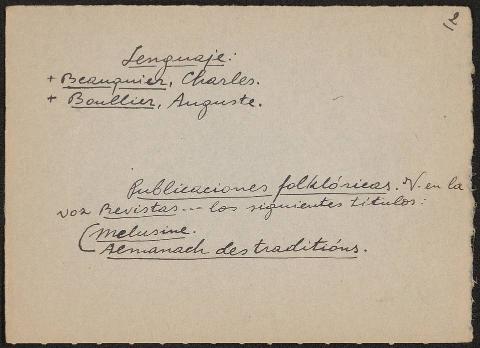 2
Lenguaje:
+ Beauquier, Charles.
+ Boullier, Auguste.
Publicaciones folklóricas. V. en la
voz Revistas... los siguientes títulos:
(Melusine.
Almanach des traditións.